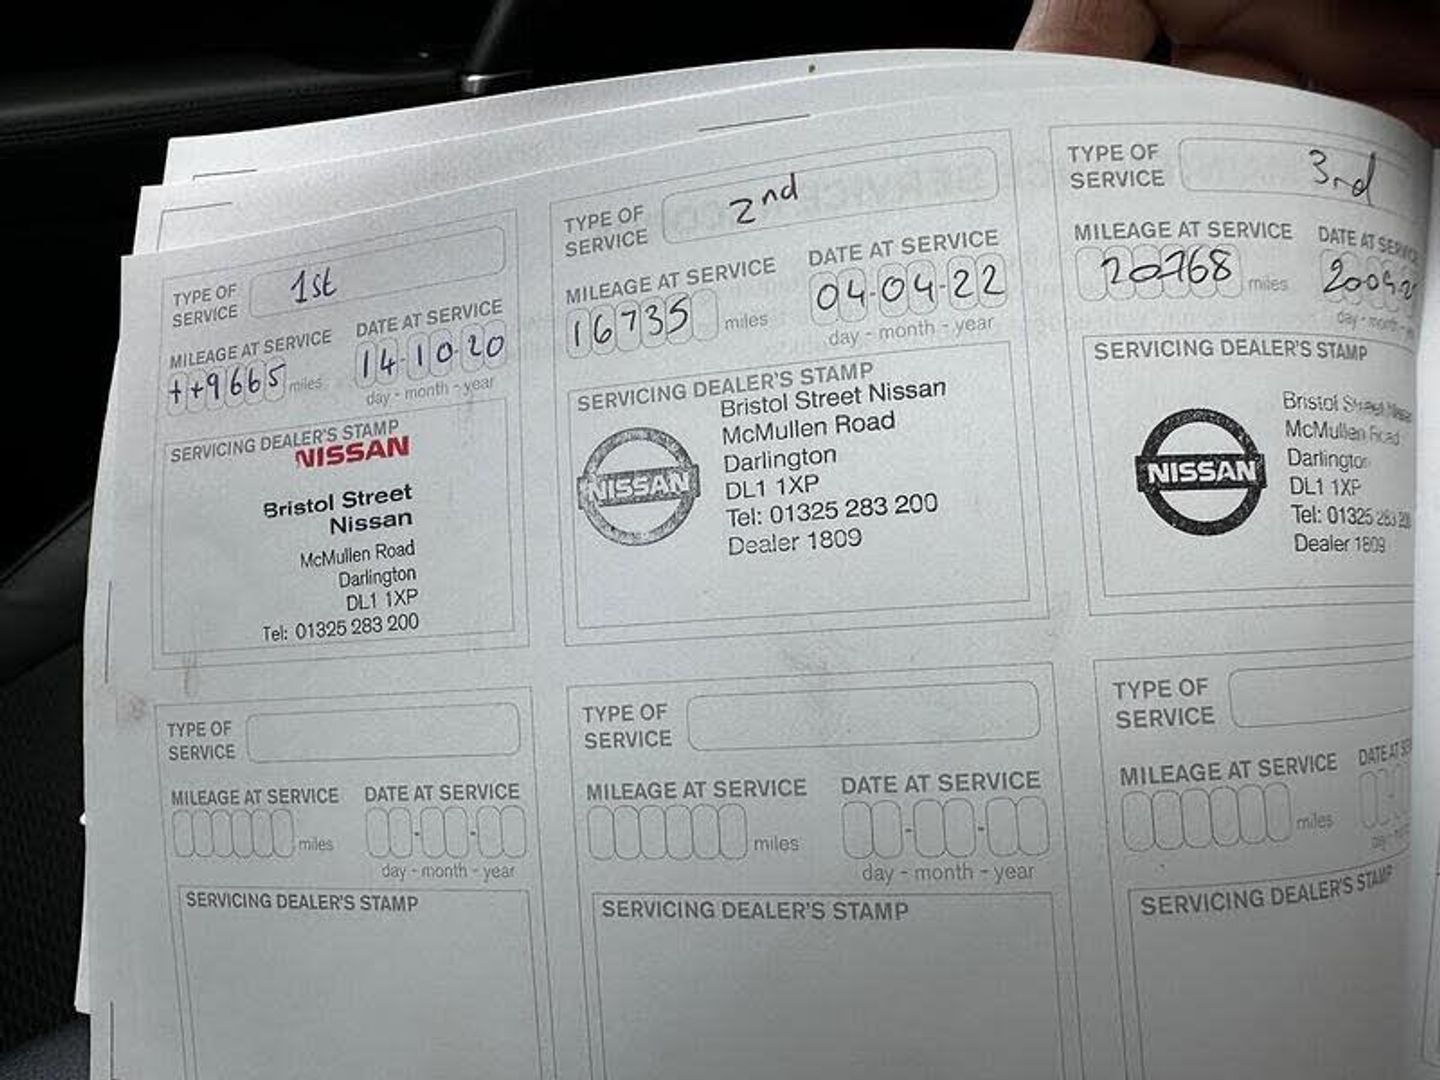 TYPE OF
SERVICE
1st
MILEAGE AT SERVICE
DATE AT SERVICE
++9665 miles
14-10-20
day - month - year
SERVICING DEALER'S STAMP
NISSAN
Bristol Street
Nissan
McMullen Road
Darlington
DL1 1XP
Tel: 01325 283 200
TYPE OF
SERVICE
2nd
MILEAGE AT SERVICE
DATE AT SERVICE
16735 miles
04-04-22
day - month - year
SERVICING DEALER'S STAMP
NISSAN
Bristol Street Nissan
McMullen Road
Darlington
DL1 1XP
Tel: 01325 283 200
Dealer 1809
TYPE OF
SERVICE
3rd
MILEAGE AT SERVICE
DATE AT SERVICE
20768 miles
day - month
SERVICING DEALER'S STAMP
NISSAN
Bristol Street
McMullen Road
Darlington
DL1 1XP
Tel: 01325 283 200
Dealer 1809
TYPE OF
SERVICE
MILEAGE AT SERVICE
DATE AT SERVICE
miles
day - month - year
SERVICING DEALER'S STAMP
TYPE OF
SERVICE
MILEAGE AT SERVICE
DATE AT SERVICE
miles
day - month - year
SERVICING DEALER'S STAMP
TYPE OF
SERVICE
MILEAGE AT SERVICE
DATE AT
miles
SERVICING DEALER'S STAMP